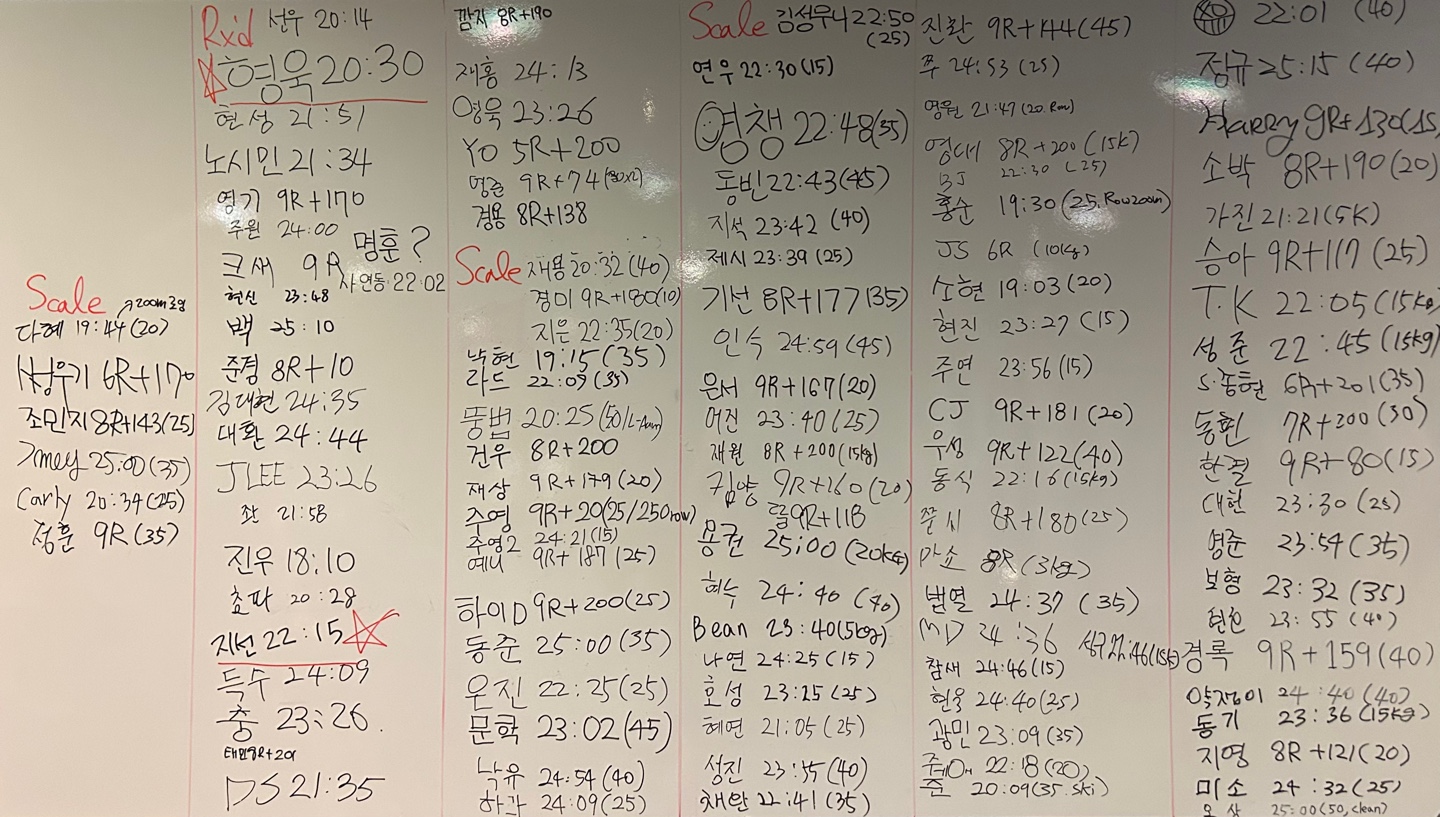 Scale ↗200m로잉
다혜 19:44(20)
성우기 6R+170
조민지 8R+143(25)
25:00(35)
Carly 20:34(25)
정훈 9R(35)
Rxd 선우 20:14
☆형욱 20:30
현성 21:51
노시민 21:34
영기 9R+170
주원 24:00
명훈?
크새 9R
사연동 22:02
현신 23:48
백 25:10
준경 8R+10
김대현 24:35
대환 24:44
JLEE 23:26
좌 21:58
진우 18:10
초파 20:28
지선 22:15☆
득수 24:09
충 23:26.
태민 9R+201
DS 21:35
깜지 8R+190
재홍 24:13
영욱 23:26
YO 5R+200
영준 9R+74
경용 8R+138
Scale 재용 20:32(40)
경미 9R+180(10)
지은 22:35(20)
낙현 19:15(35)
라드 22:09(35)
뚱법 20:25
건우 8R+200
재상 9R+179(20)
주영 9R+20(25/250row)
주영2 24:21(15)
예니 9R+187(25)
하이D 9R+200(25)
동준 25:00(35)
은진 22:25(25)
문학 23:02(45)
낙유 24:54(40)
하각 24:09(25)
Scale 김성우니 22:50
(25)
연우 22:30(15)
영챙 22:48(35)
동빈 22:43(45)
지석 23:42 (40)
제시 23:39 (25)
기선 8R+177(35)
인수 24:59(45)
은서 9R+167(20)
어진 23:40(25)
재원 8R+200(15kg)
김양 9R+160(20)
달 9R+118
용권 25:00(20kg)
혜수 24:40 (40)
Bean 23:40(5kg)
나연 24:25(15)
효성 23:25(25)
혜연 21:05(25)
성진 23:55(40)
채완 22:41(35)
진환 9R+144(45)
쭈 24:53 (25)
영원 21:47(20.Row)
영대 8R+200(15k)
BJ 22:30 (25)
홍순 19:30(25.Row200m)
JS 6R (10kg)
소현 19:03(20)
현진 23:27(15)
주연 23:56(15)
CJ 9R+181(20)
우성 9R+122(40)
동식 22:16(15kg)
쭌시 8R+180(25)
마쇼 8R(3kg)
범열 24:37 (35)
MD 24:36
성규 22:46(15k)
참새 24:46(15)
현율 24:40(25)
광민 23:09(35)
22:18(20)
준 20:09(35.ski)
22:01 (40)
정규 25:15(40)
Harry 9R+130(15)
소박 8R+190(20)
가진 21:21(5K)
승아 9R+117(25)
T.K 22:05(15kg)
성준 22:45(15kg)
S.동현 6R+201(35)
동현 7R+200(30)
한결 9R+80(15)
대헌 23:30(25)
명준 23:54(35)
보형 23:32(35)
현준 23:55(40)
경록 9R+159(40)
약쟁이 24:40(40)
동기 23:36(15kg)
지영 8R+121(20)
미소 24:32(25)
25:00(50,clean)